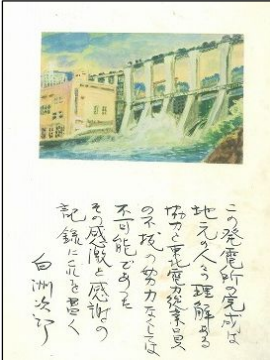 この発電所の完成は
地元の人々の理解ある
協力と東北電力従業員
の不撓の努力なくしては
不可能であった
その感激と感謝の
記録に之を書く
白洲次郎